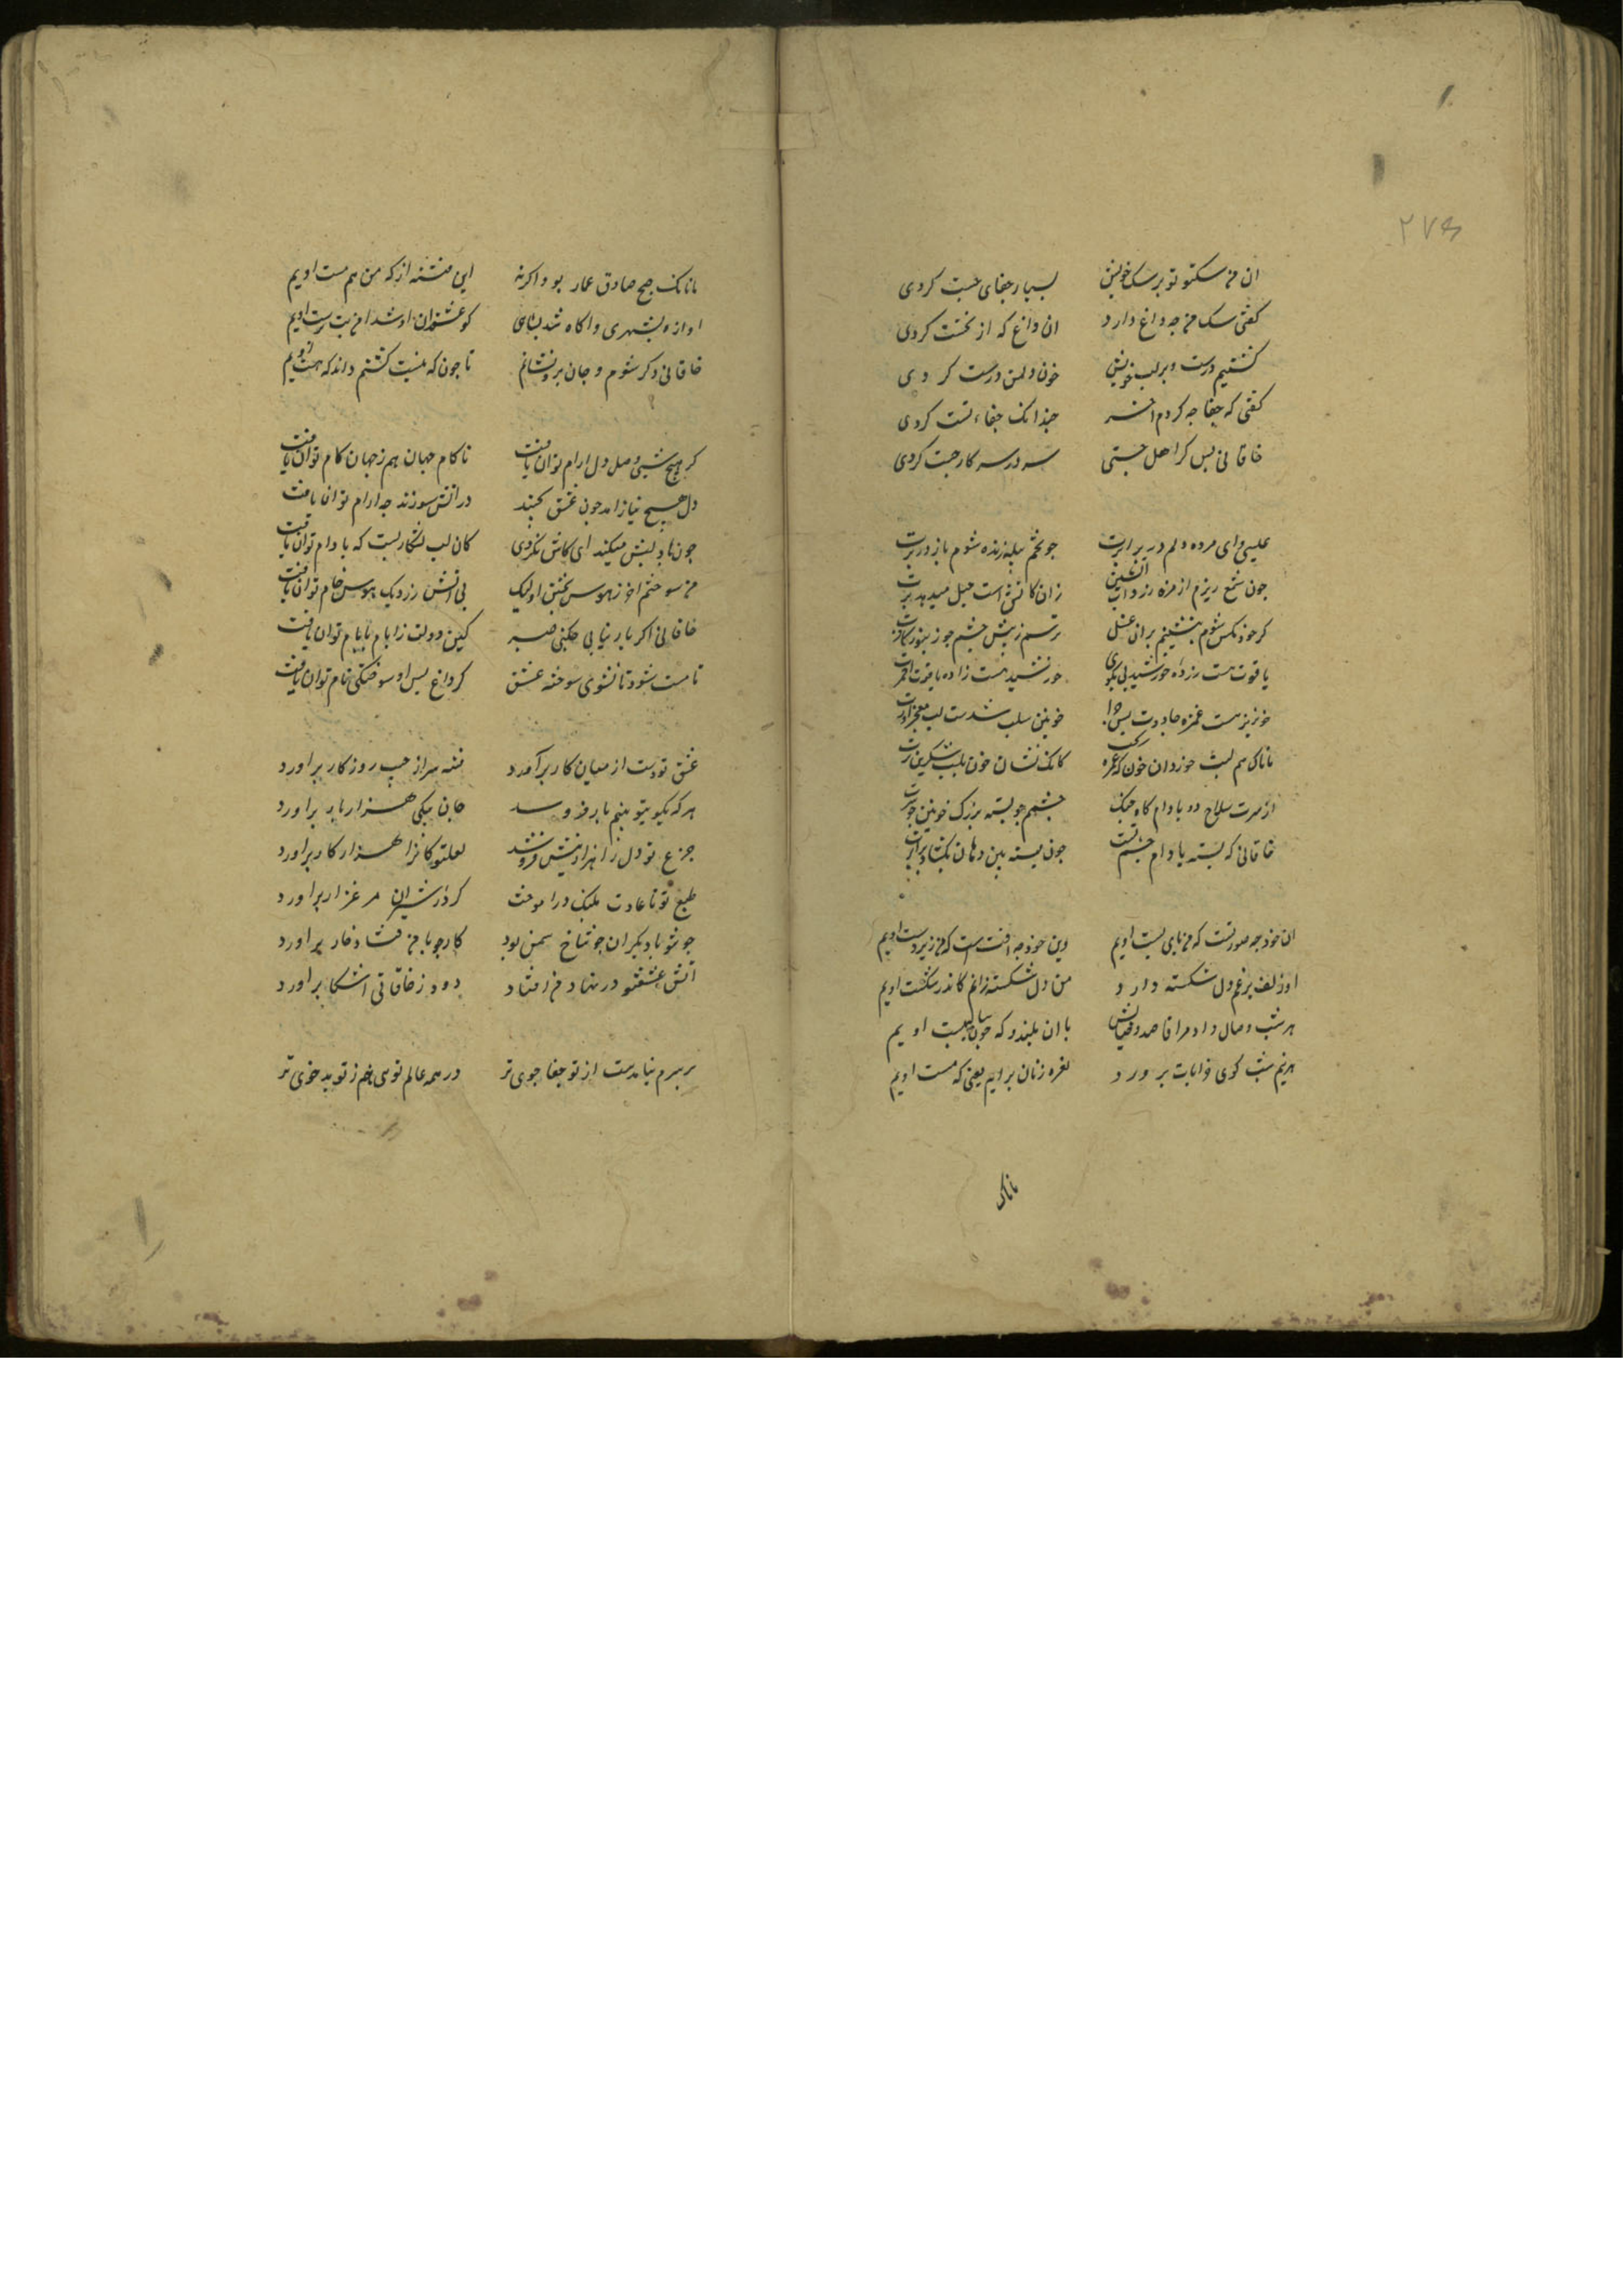 ۲۷۵
ان من سکتو تو بر سک خویش بسیار جفای جست کردی
کفتی سک من جه داغ دارد ان داغ که از نخست کردی
کشتیم درست و بر لب خویش خون دلمن درست کردی
کفتی که جفا جه کردم اخر جندانک جفاءتست کردی
خاقانی بس کز اهل جستی سر در سر کار جست کردی
عیسی لب مرده دلم در برابرت
جون شمع ریزم از مژه
کر خود مکس شوم بنشینم بران عسل ترسم ز نیش جشم جو زنبور کافرت
یاقوت هست زاده خورشید نی مکوی خورشید هست زاده یاقوت احمرت
خونریز هست غمزه جادوت بس جرا خونین سلب شدست لب
مانا که هم لبت خورد ان خون که غمزه ریخت کاینک نشان خون بلب شکرین برت
از سرت سلاح دو بادام کاه جنک جشمم جو بسته بزرک خونین جوهرت
خاقانی که بسته بادام جشم تست جون بسته بین دهان بکشاد برابرت
ان خود جه صورتست که من بای بست اویم وین خود جه افتست که من زیر دست اویم
او زلف بر غم دل شکسته دارد من دل شکسته زانم کاندر شکست اویم
هر شب وصال داد مرا قاصد وصالش با ان بلندو که جون بست اویم
هر نیم شب کوی خرابات بر ورد نعره زنان برایم یعنی که مست اویم
مانک
مانانک صبح صادق غماز بود اکرنه این فتنه از که من هم مست اویم
اوازه بشهری واکاه شد بناهی کز عشق ان او شد من بت برست اویم
خاقانی دکر شوم و جان برو فشانم تا جون که نیست کشتم داند که هست اویم
کر هیج شبی وصل دل ارام توان یافت ناکام جهان هم ز جهان کام توان یافت
دل هیج نیازامد جون عشق بجنبد در اتش سوزنده جه ارام توان یافت
جون باد لبش میکند ای کاش نکردی کان لب نشکاریست که با دام توان یافت
من سوختم اخر ز هوس بختن او لیک بی اتش رز دیک هوس خام توان یافت
خاقانی اکر یار نیابی جکنی صبر کین دولت زایام بایام توان یافت
تا مست نشود تا نشوی سوخته عشق کز داغ بس او سوختکی تام توان یافت
عشق تو دست از میان کار براورد فتنه سر از جیب روزکار براورد
هر که بکوی تو نیم بار فرو شد جان بیکی هزار بار براورد
جزع تو دل را هزار نیش فرو شد لعلتو کانرا هزار کار براورد
طبع تو تا عادت بلنک دراموخت کرد از شیران مرغزار براورد
جو تو با دیکران جو شاخ سمن بود کار جو با من فتاد خار براورد
اتش عشقتو در نهاد من افتاد دود ز خاقانی اشکا براورد
بر سرم نیامدست از تو جفا جوی تر در همه عالم توی هم ز تو بد خوی تر